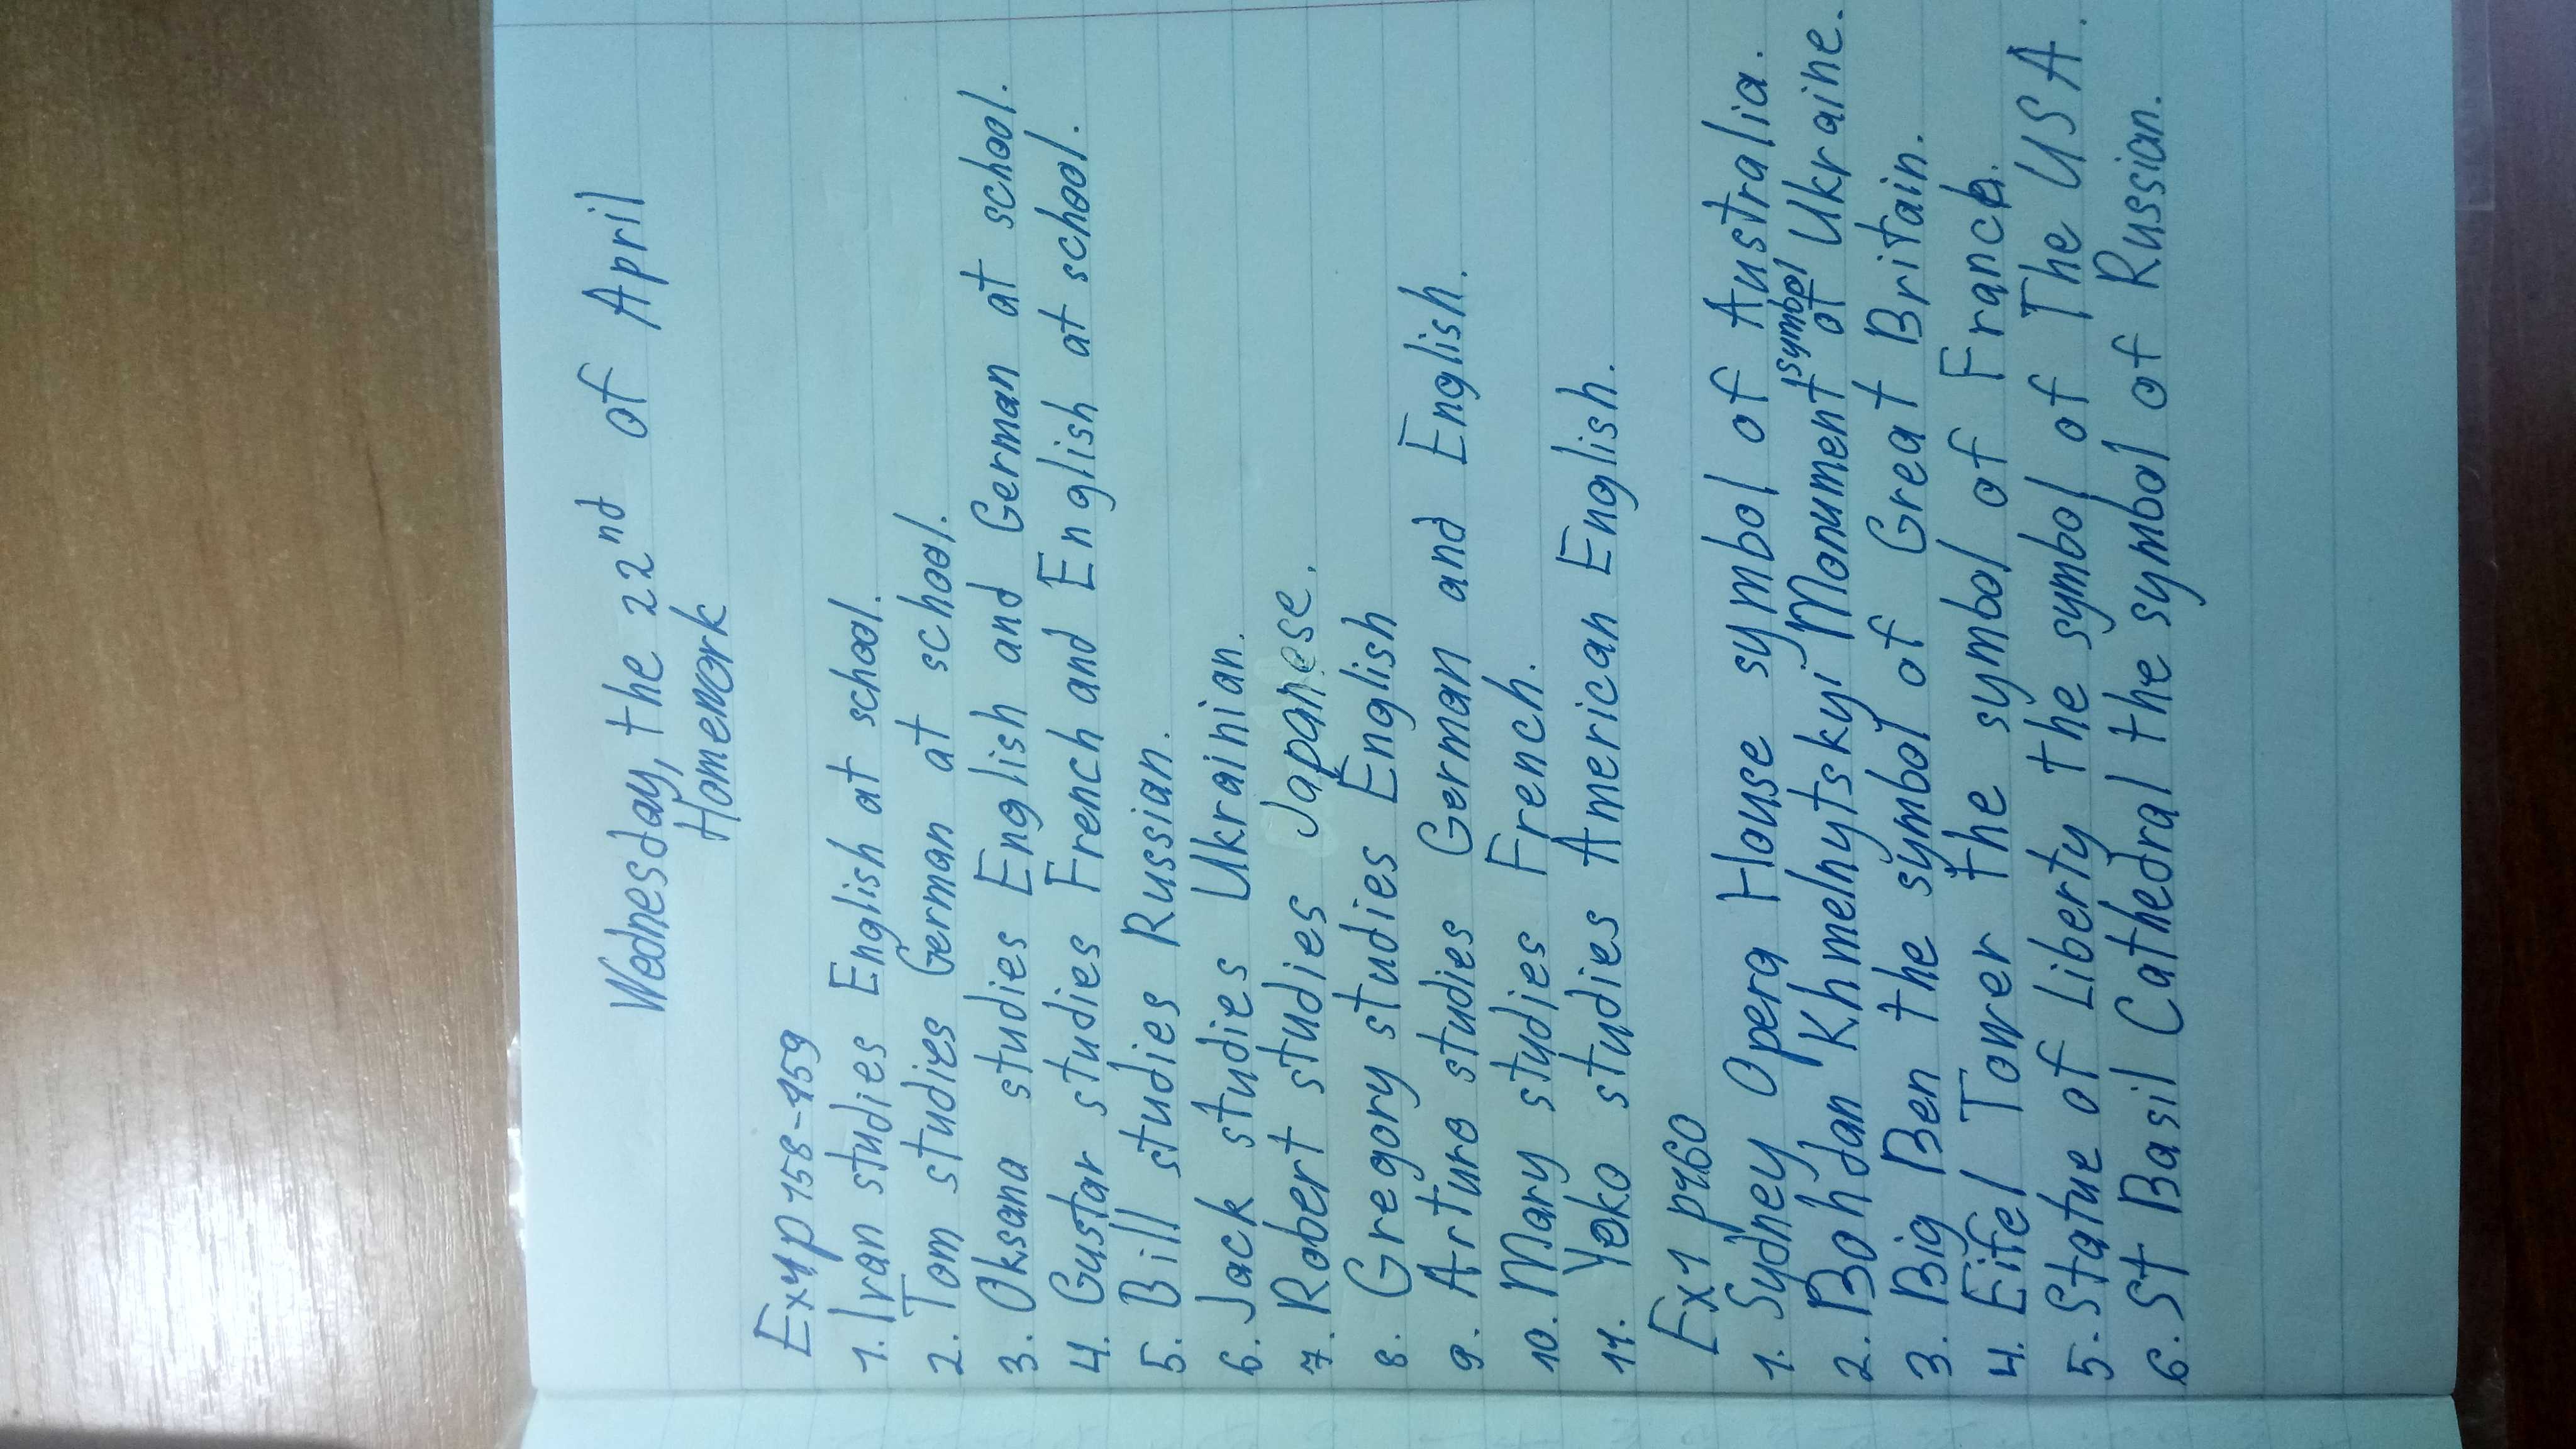 Wednesday, the 22nd of April
Homework
Ex4 p 158-159
1. Ivan studies English at school.
2. Tom studies German at school.
3. Oksana studies English and German at school.
4. Gustav studies French and English at school.
5. Bill studies Russian.
6. Jack studies Ukrainian.
7. Robert studies Japanese.
8. Gregory studies English
9. Arturo studies German and English.
10. Mary studies French.
11. Yoko studies American English.
Ex1 p160
1. Sydney Opera House symbol of Australia.
2. Bohdan Khmelnytskyi Monument symbol of Ukraine.
3. Big Ben the symbol of Great Britain.
4. Eifel Tower the symbol of France.
5. Statue of Liberty the symbol of The USA.
6. St Basil Cathedral the symbol of Russian.